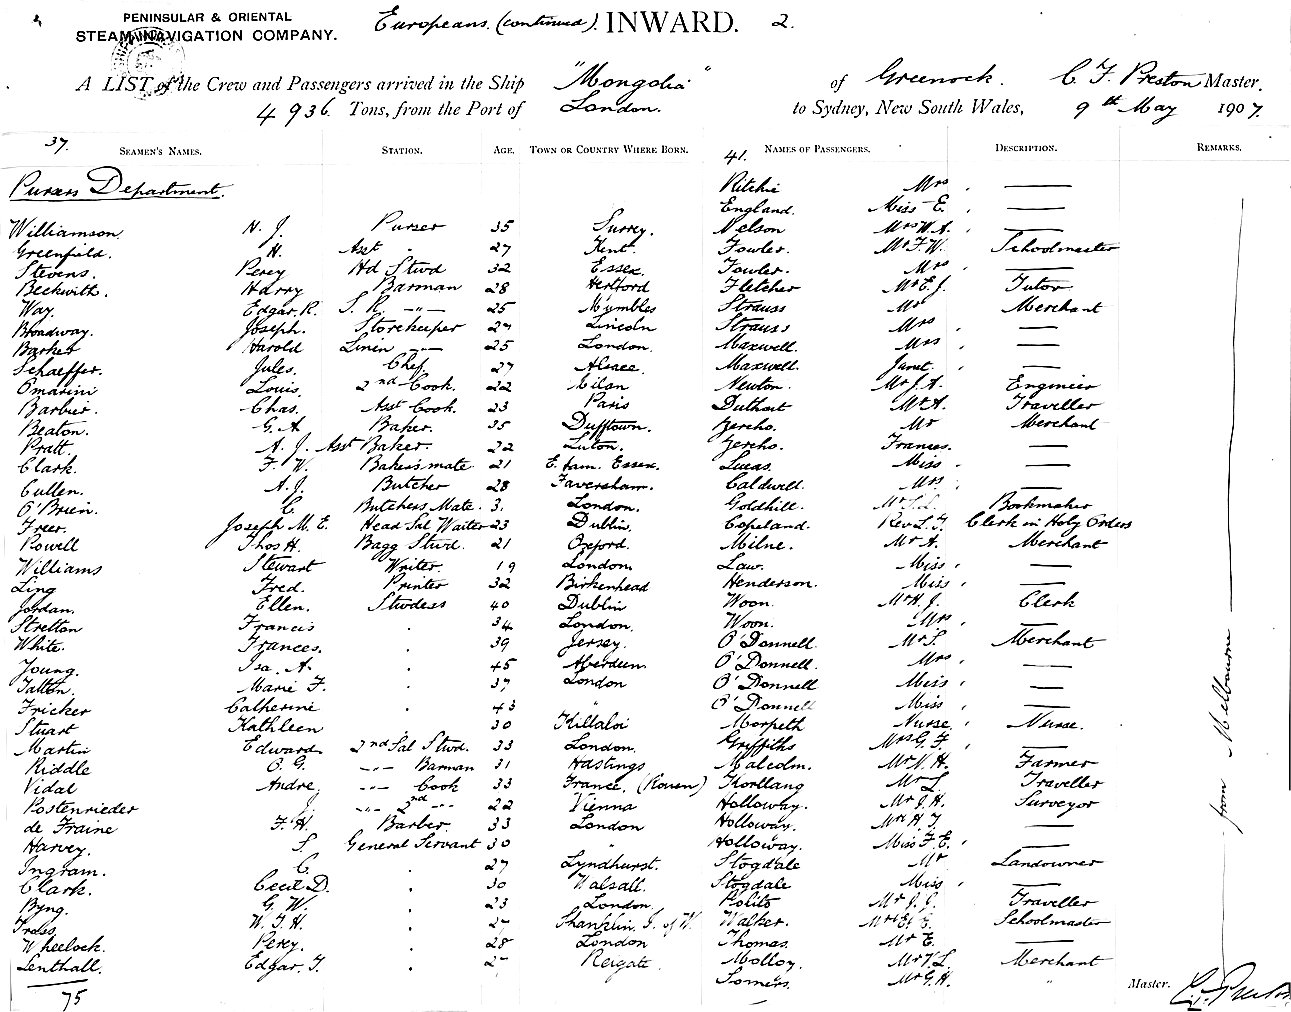 PENINSULAR & ORIENTAL
STEAM NAVIGATION COMPANY.
Europeans. (continued). INWARD. 2.
A LIST of the Crew and Passengers arrived in the Ship "Mongolia" of Greenock. C F Preston Master,
4936 Tons, from the Port of London. to Sydney, New South Wales, 9th May 1907.
37. 41.
SEAMEN'S NAMES. STATION. AGE. TOWN OR COUNTRY WHERE BORN. NAMES OF PASSENGERS. DESCRIPTION. REMARKS.
Pursers Department. Ritchie Mrs " —
England. Miss E. " —
Williamson. H. J. Purser 35 Surrey. Nelson Mrs W.A. " —
Greenfield. H. Asst " 27 Kent. Fowler. Mr F.W. Schoolmaster
Stevens. Percy Hd Stwd 32 Essex. Fowler. Mrs " —
Beckwith. Harry Barman 28 Hertford Fletcher Mr E.J. Tutor
Way. Edgar R. S. R. —"— 25 Mumbles Strauss Mr Merchant
Broadway. Joseph. Storekeeper 27 Lincoln Strauss Mrs " —
Barker Harold Linen —"— 25 London. Maxwell. Mrs " —
Schaeffer. Jules. Chef. 27 Alsace. Maxwell. Janet. " —
Omarini Louis. 2nd Cook. 22 Milan Newton. Mr J.A. Engineer
Barbier. Chas. Asst Cook. 23 Paris Duthart Mr A. Traveller
Beaton. G.A. Baker. 35 Dufftown. Jercho. Mr Merchant
Pratt. A. J. Asst Baker. 22 Luton. Jercho. Frances. —
Clark. F. W. Baker's mate 21 E. Ham. Essex. Lucas. Miss " —
Cullen. A.J. Butcher 28 Faversham. Caldwell. Mrs " —
O'Brien. C. Butchers Mate. 3. London. Goldhill. Mr Bookmaker
Freer. Joseph M. E. Head Sal Waiter 23 Dublin. Copeland. Rev L. J. Clerk in Holy Orders
Powell Thos H. Bagg Stwd. 21 Oxford. Milne. Mr A. Merchant
Williams Stewart Writer. 19 London. Law. Miss " —
Ling Fred. Printer 32 Birkenhead Henderson. Miss " —
Jordan. Ellen. Stwdess 40 Dublin Woon. Mr H. J. Clerk
Stretton Francis " 34 London. Woon. Mrs " —
White. Frances. " 39 Jersey. O'Donnell. Mr S. Merchant
Young. Isa. A. " 45 Aberdeen. O'Donnell. Mrs " —
Tatton. Marie F. " 37 London O'Donnell Miss " —
Fricker Catherine " 43 " O'Donnell Miss " —
Stuart Kathleen 30 Killaloi Morpeth Nurse " Nurse.
Martin Edward 2nd Sal Stwd. 33 London. Griffiths Mrs G. F. " —
Riddle C. G. —"— Barman 31 Hastings Malcolm. Mr N. H. Farmer
Vidal Andre, —"— Cook 33 France, (Rouen) Korllang Mr L. Traveller
Postenrieder J. —"— 2nd —"— 22 Vienna Holloway. Mr J. H. Surveyor
de Fraine F. H. Barber. 33 London Holloway. Mrs H. J. —
Harvey. S. General Servant 30 " Holloway. Miss F. E. " —
Ingram. C. " 27 Lyndhurst. Stogdale Mr Landowner
Clark. Cecil D. " 30 Walsall. Stogdale Miss " —
Byng. G. W. " 23 London. Polito Mr J. J. Traveller
Fross W. F. H. " 27 Shanklin I. of W. Walker. Mr E. E. Schoolmaster
Wheelock. Percy. " 28 London Thomas. Mr E. —
Lenthall. Edgar. J. " 2 Reigate Molloy. Mr V. L. Merchant
75 Somers. Mr G. H. "
from Melbourne
Master. C. F. Preston